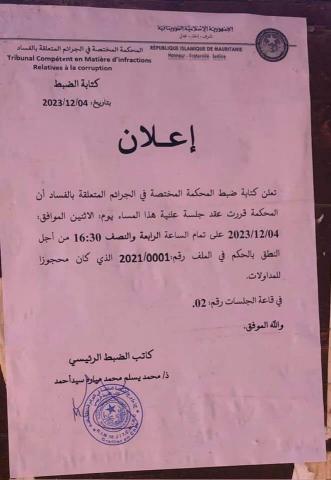 الجمهورية الإسلامية الموريتانية
شرف - إخاء - عدل
RÉPUBLIQUE ISLAMIQUE DE MAURITANIE
Honneur - Fraternité - Justice
المحكمة المختصة في الجرائم المتعلقة بالفساد
Tribunal Compétent en Matière d'infractions
Relatives à la corruption
كتابة الضبط
بتاريخ: 2023/12/04
إعـلان
تعلن كتابة ضبط المحكمة المختصة في الجرائم المتعلقة بالفساد أن
المحكمة قررت عقد جلسة علنية هذا المساء يوم: الاثنين الموافق:
2023/12/04 على تمام الساعة الرابعة والنصف 16:30 من أجل
النطق بالحكم في الملف رقم: 2021/0001 الذي كان محجوزا
للمداولات.
في قاعة الجلسات رقم: 02.
والله الموفق.
كاتب الضبط الرئيسي
ذ/ محمد يسلم محمد مبارك سيدأحمد